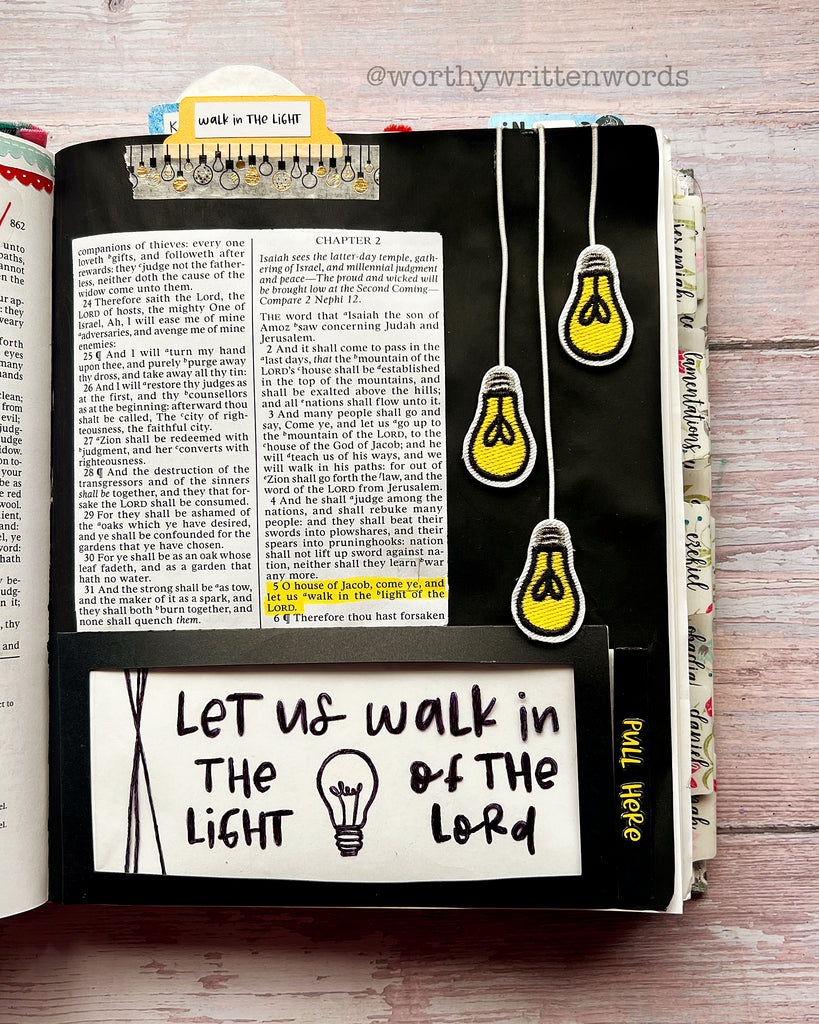 @worthywrittenwords
K
walk in THE LIGHT
in
862
unto
paths,
cannot
en the
ur ap-
e; they
weary
forth
eyes
many
hands
clean;
from
evil;
judge
judge
widow.
on to-
your
be as
e red
wool.
ient,
and:
e bel,
word:
hath
y be-
judg-
in it;
, thy
ct to
el.
el.
companions of thieves: every one
loveth ᵇgifts, and followeth after
rewards: they ᶜjudge not the father-
less, neither doth the cause of the
widow come unto them.
24 Therefore saith the Lord, the
LORD of hosts, the mighty One of
Israel, Ah, I will ease me of mine
ᵃadversaries, and avenge me of mine
enemies:
25 ¶ And I will ᵃturn my hand
upon thee, and purely ᵇpurge away
thy dross, and take away all thy tin:
26 And I will ᵃrestore thy judges as
at the first, and thy ᵇcounsellors
as at the beginning: afterward thou
shalt be called, The ᶜcity of righ-
teousness, the faithful city.
27 ᵃZion shall be redeemed with
ᵇjudgment, and her ᶜconverts with
righteousness.
28 ¶ And the destruction of the
transgressors and of the sinners
shall be together, and they that for-
sake the LORD shall be consumed.
29 For they shall be ashamed of
the ᵃoaks which ye have desired,
and ye shall be confounded for the
gardens that ye have chosen.
30 For ye shall be as an oak whose
leaf fadeth, and as a garden that
hath no water.
31 And the strong shall be ᵃas tow,
and the maker of it as a spark, and
they shall both ᵇburn together, and
none shall quench them.
CHAPTER 2
Isaiah sees the latter-day temple, gath-
ering of Israel, and millennial judgment
and peace—The proud and wicked will
be brought low at the Second Coming—
Compare 2 Nephi 12.
THE word that ᵃIsaiah the son of
Amoz ᵇsaw concerning Judah and
Jerusalem.
2 And it shall come to pass in the
ᵃlast days, that the ᵇmountain of the
LORD's ᶜhouse shall be ᵈestablished
in the top of the mountains, and
shall be exalted above the hills;
and all ᵉnations shall flow unto it.
3 And many people shall go and
say, Come ye, and let us ᵃgo up to
the ᵇmountain of the LORD, to the
ᶜhouse of the God of Jacob; and he
will ᵈteach us of his ways, and we
will walk in his paths: for out of
ᵉZion shall go forth the ᶠlaw, and the
word of the LORD from Jerusalem.
4 And he shall ᵃjudge among the
nations, and shall rebuke many
people: and they shall beat their
swords into plowshares, and their
spears into pruninghooks: nation
shall not lift up sword against na-
tion, neither shall they learn ᵇwar
any more.
5 O house of Jacob, come ye, and
let us ᵃwalk in the ᵇlight of the
LORD.
6 ¶ Therefore thou hast forsaken
LeT us walk in
THe of THe
LiGHT LoRd
PULL HeRe
jeremiah
lamentations
ezekiel
daniel
obadia